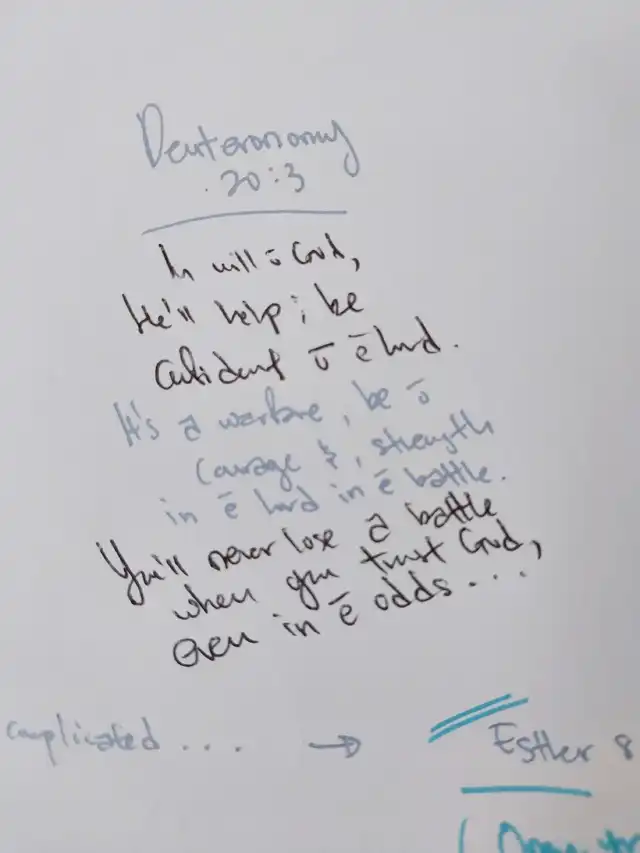 Deuteronomy
20:3
In will ō God,
He'll help; be
Confident ō ē Lord.
It's ā warfare, be ō
Courage &, strength
in ē Lord in ē battle.
You'll never lose ā battle
when you trust God,
even in ē odds....
complicated.... → Esther 8